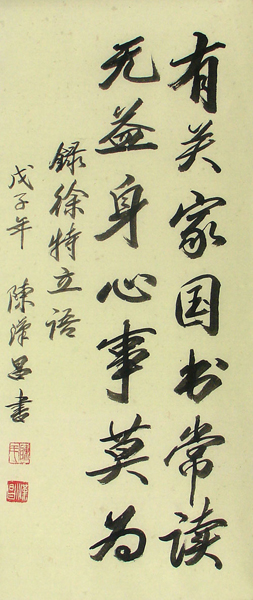 有关家国书常读
无益身心事莫为
录徐特立语
戊子年 陈汉昌書